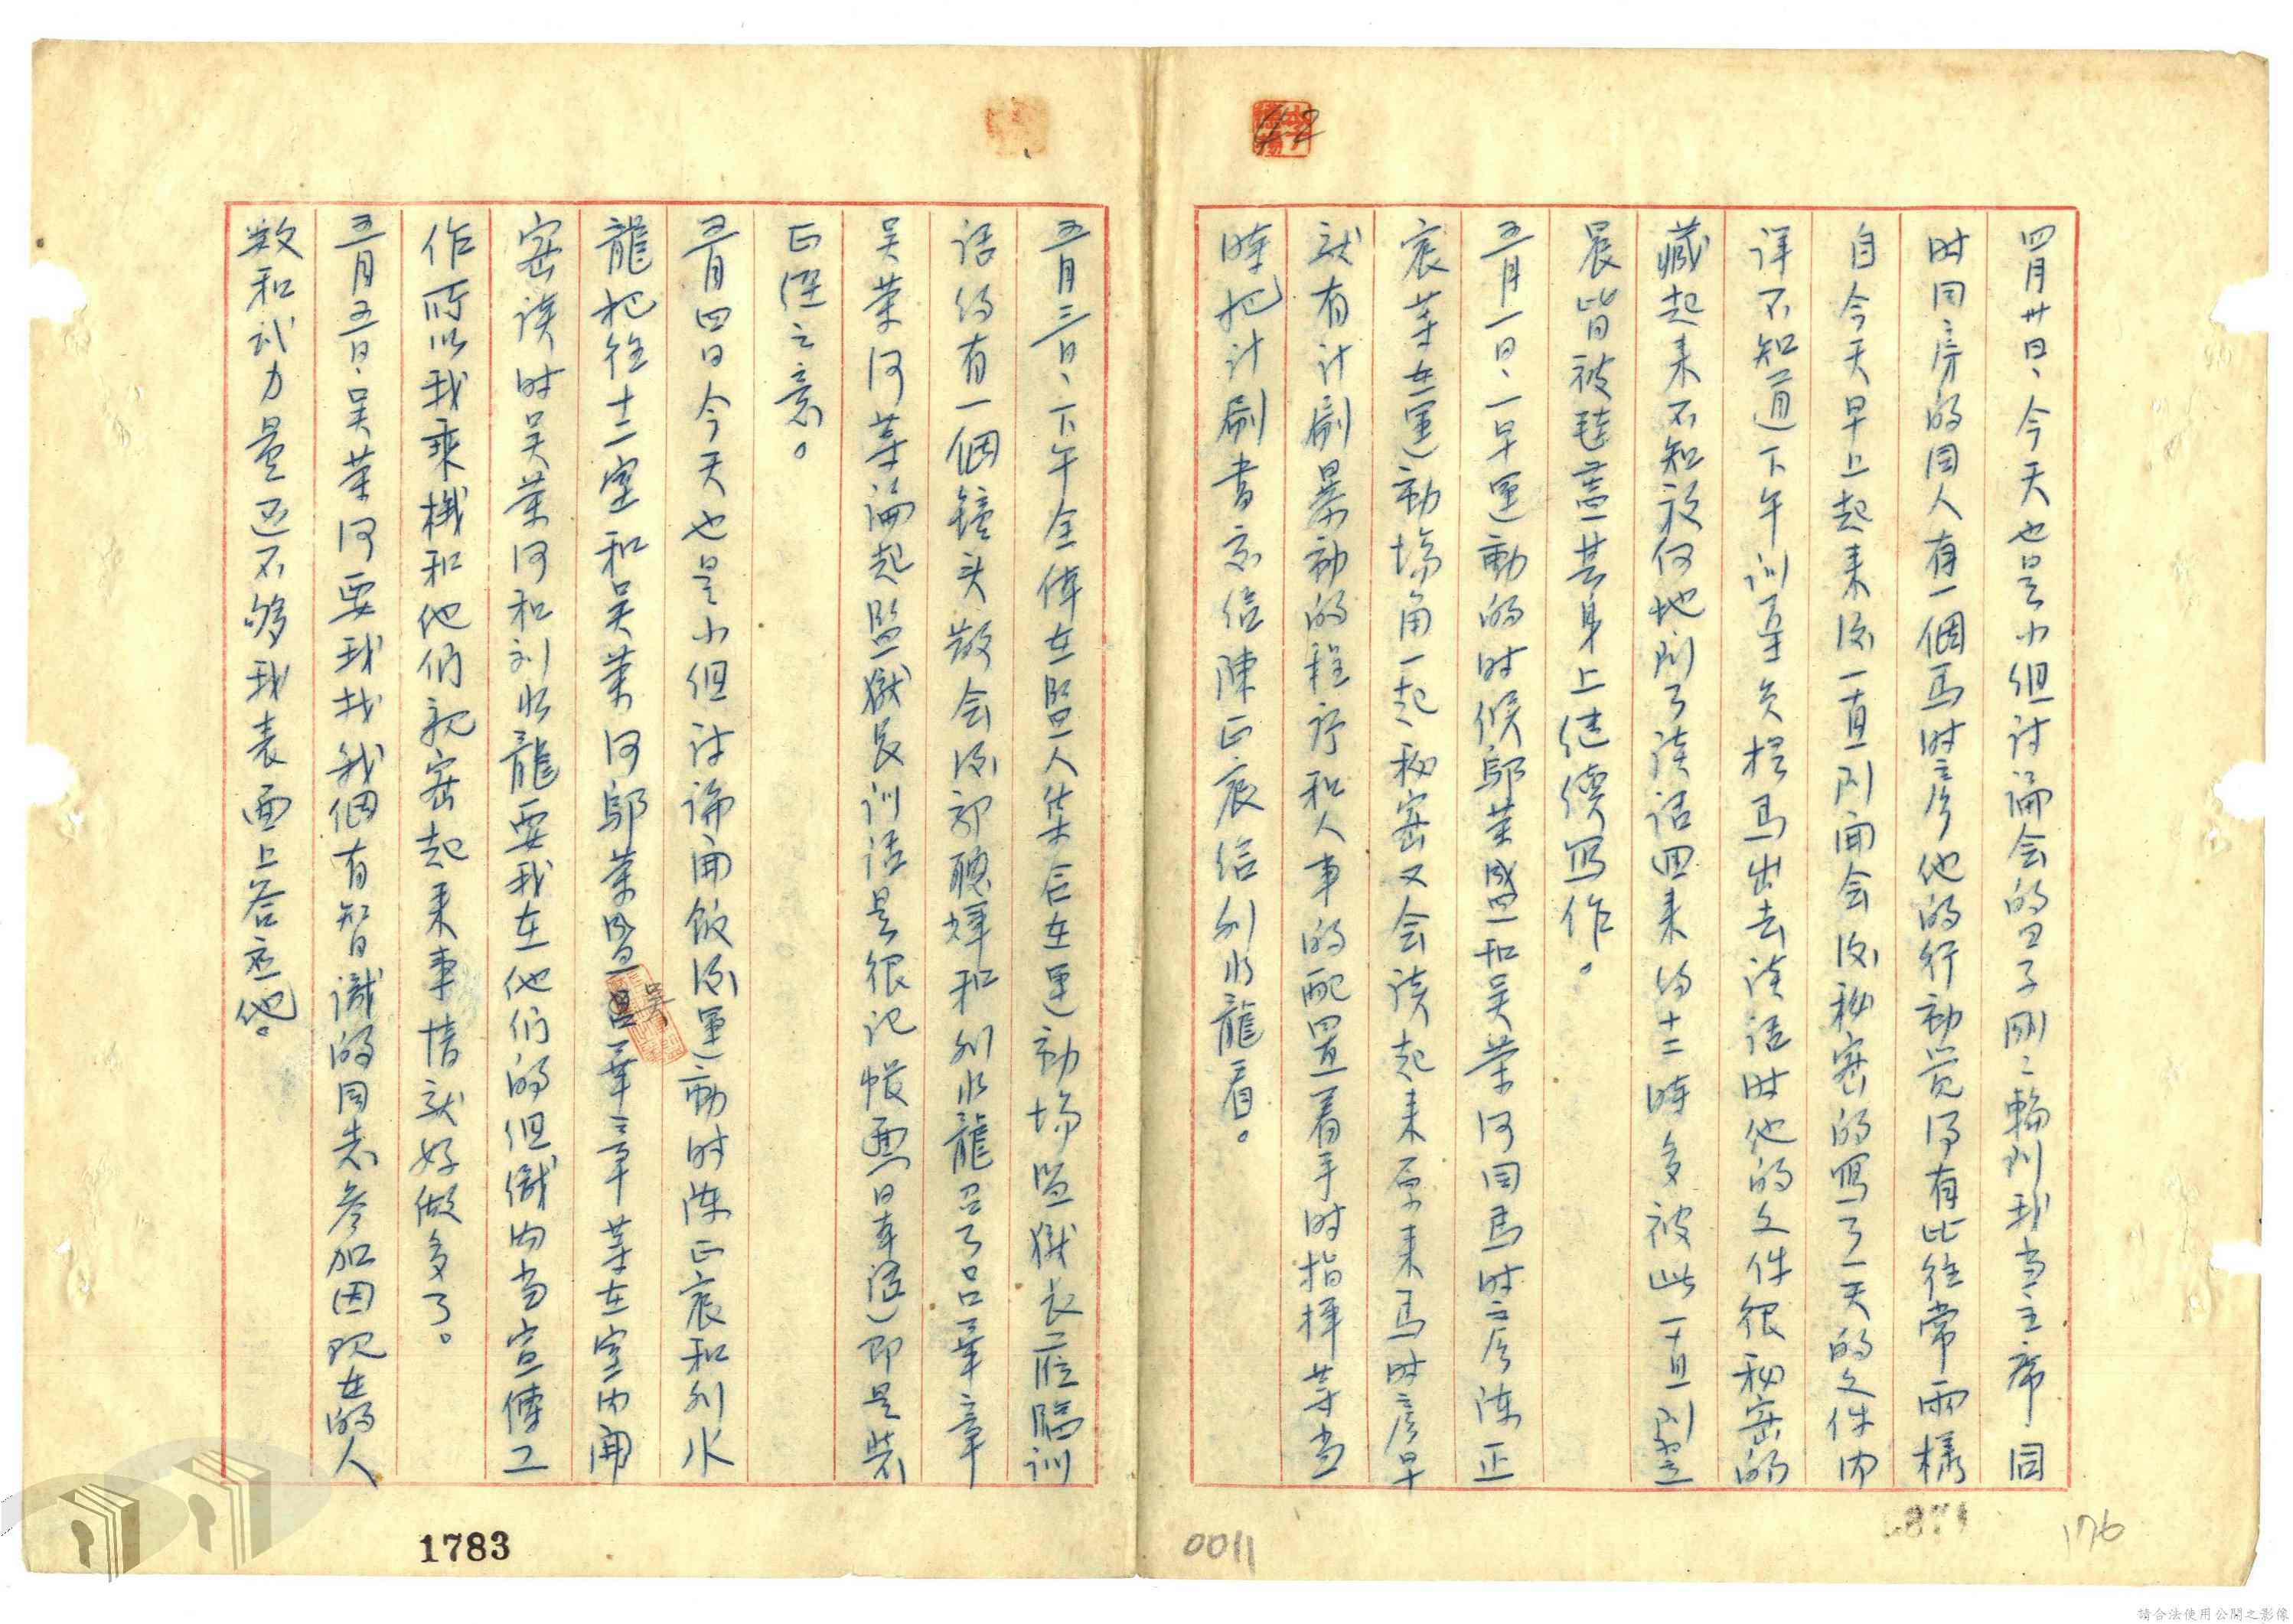 四月卅日、今天也是小組討論会的日子剛々輪到我当主席、同
时同房的同人有一個馬时彥他的行动覚得有比往常兩樣
自今天早上起来後一直到開会後秘密的寫了一天的文件内
详不知道下午訓導員提馬出去談話时他的文件很秘密的
藏起来不知放何地到了談話回来約十二時多被此一直到翌
晨皆被毯蓋其身上継續写作。
五月一日、一早運動的时候鄔葉盛和吴葉河同馬时彥陈正
宸等在運动場角一起秘密又会談起来原来馬时彥早
就有计劃暴动的程序和人事的配置着手时指揮等当
時把计劃書交给陳正宸给刘水龍看。
五月三日、下午全体在監人集合在運动場監獄長蒞臨训
话約有一個鐘头散会後郭聰輝和刘水龍召了呂華章
吴葉河等論起監獄長训話是很记恨(日本語)即是柴
正洭之意。
五月四日今天也是小组讨論開飯後運動时陈正宸和刘水
龍把往十二室和吴葉河鄔葉盛吴呂華章等在室内開
密談时吴葉河和刘水龍要我在他们的组織内当宣傳工
作所以我乘機和他們親密起来事情就好做多了。
五月五日、吴葉河要我找我個有智識的同志参加因现在的人
数和武力量还不够我表面上答应他。
1783
0011
176
請合法使用公開之影像